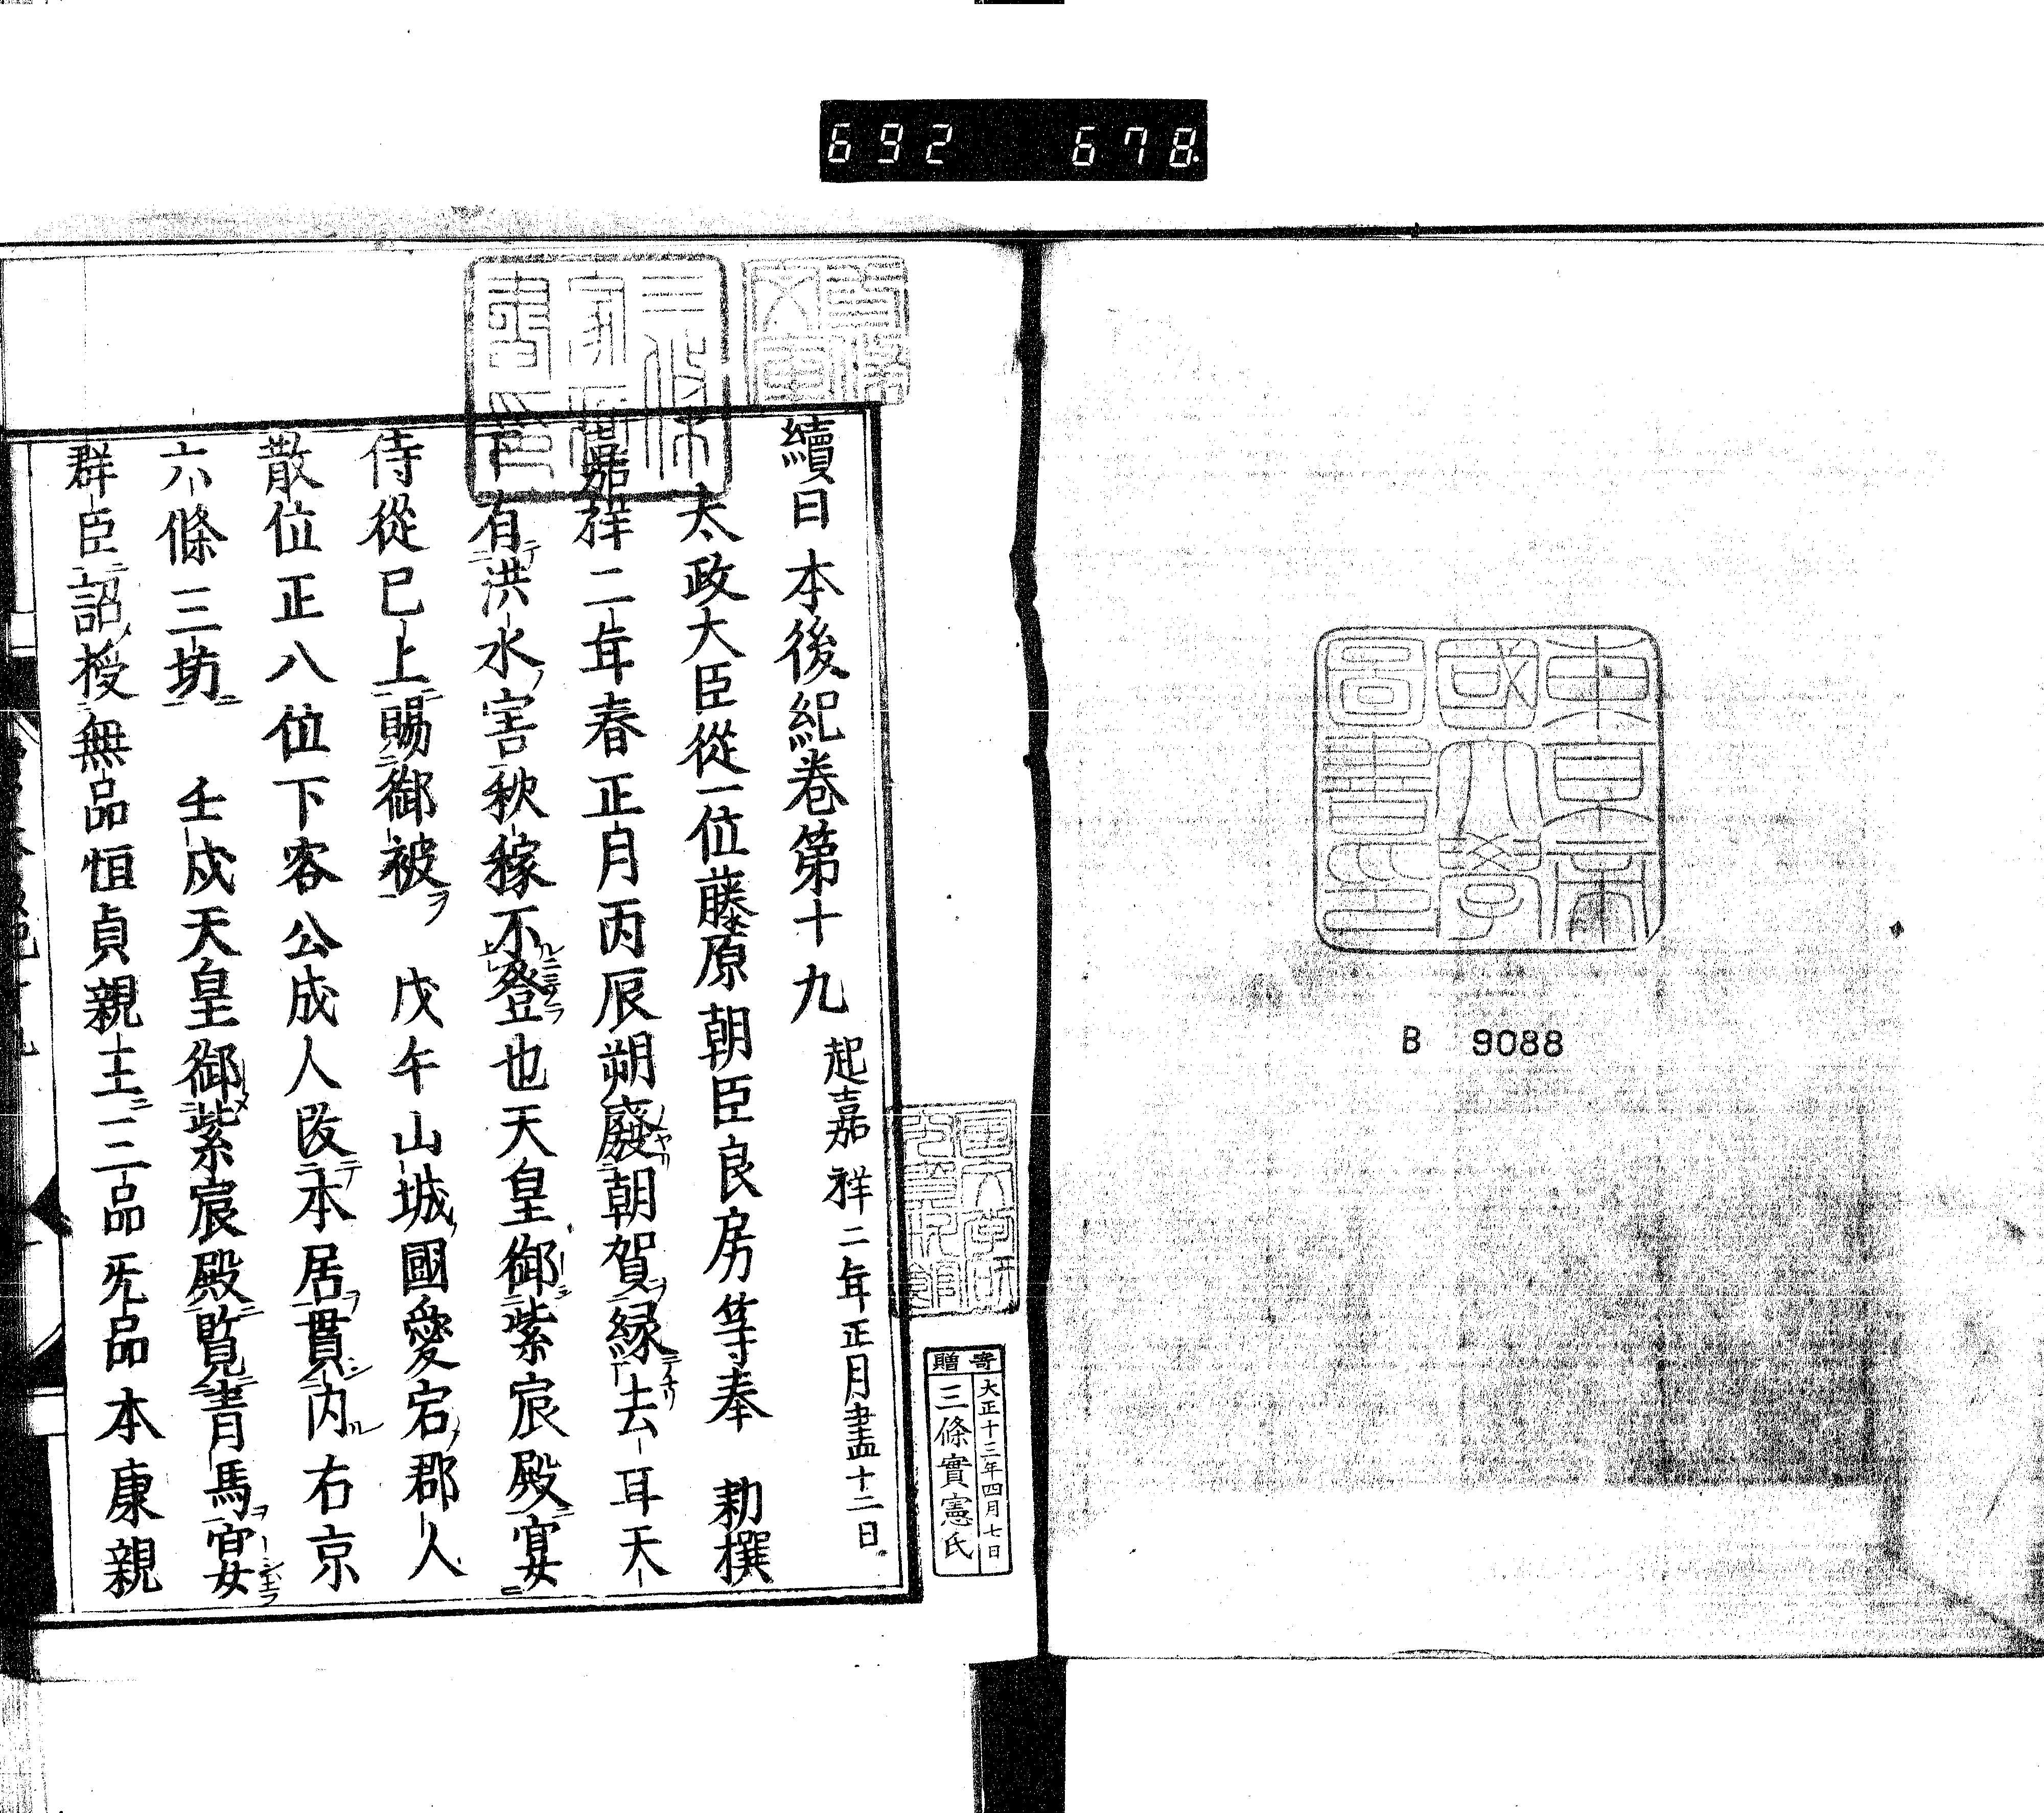 692 678
東京帝
國大學
圖書印
B 9088
寄贈
大正十三年四月七日
三條實憲氏
續日本後紀卷第十九 起嘉祥二年正月盡十二日
太政大臣從一位藤原朝臣良房等奉 勅撰
嘉祥二年春正月丙辰朔廢朝賀緣去年天
下有洪水害秋稼不登也天皇御紫宸殿宴
侍從已上賜御被 戊午山城國愛宕郡人
散位正八位下客公成人改本居貫附右京
六條三坊 壬戌天皇御紫宸殿覧青馬宴
群臣詔授無品恒貞親王三品无品本康親